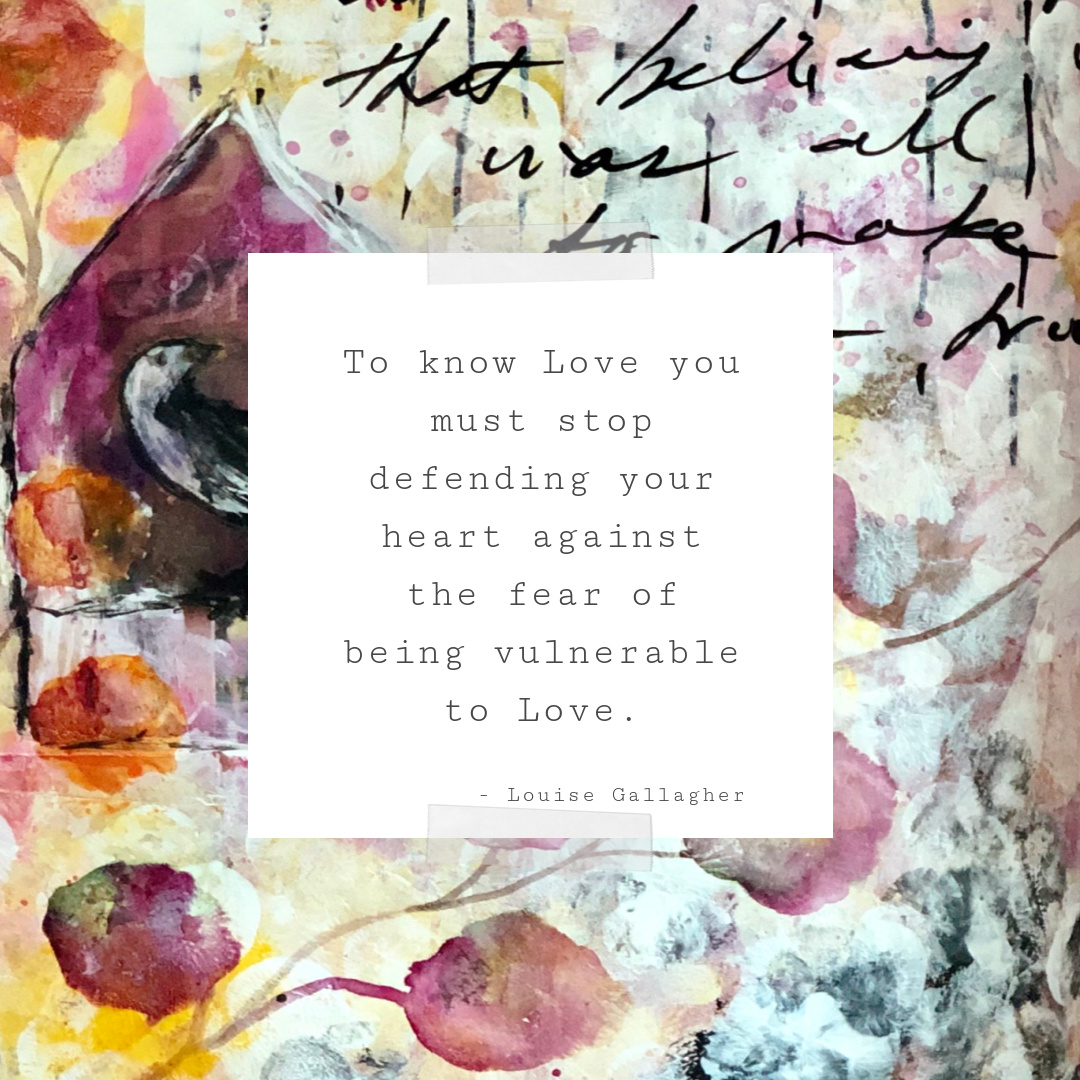 that believing
was all
to make
tru
To know Love you
must stop
defending your
heart against
the fear of
being vulnerable
to Love.
- Louise Gallagher